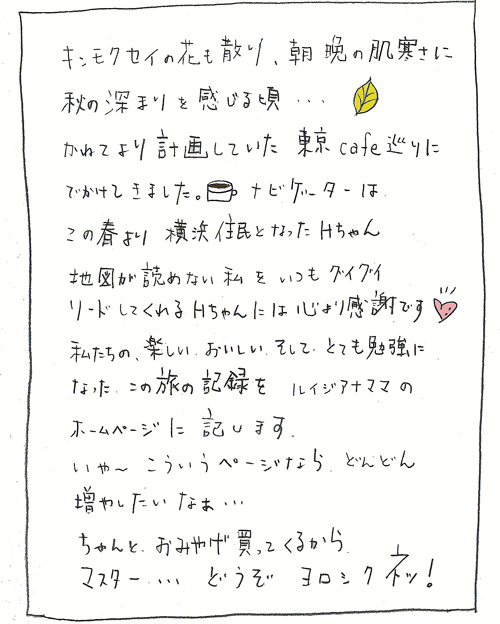 キンモクセイの花も散り、朝晩の肌寒さに
秋の深まりを感じる頃...
かねてより計画していた 東京cafe巡りに
でかけてきました。ナビゲーターは
この春より 横浜住民となったHちゃん
地図が読めない私を いつもグイグイ
リードしてくれるHちゃんには心より感謝です
私たちの、楽しい おいしい そして とても勉強に
なった この旅の記録を ルイジアナママの
ホームページに 記します.
いや〜 こういうページなら どんどん
増やしたいなぁ...
ちゃんと おみやげ買ってくるから
マスター... どうぞ ヨロシクネッ!